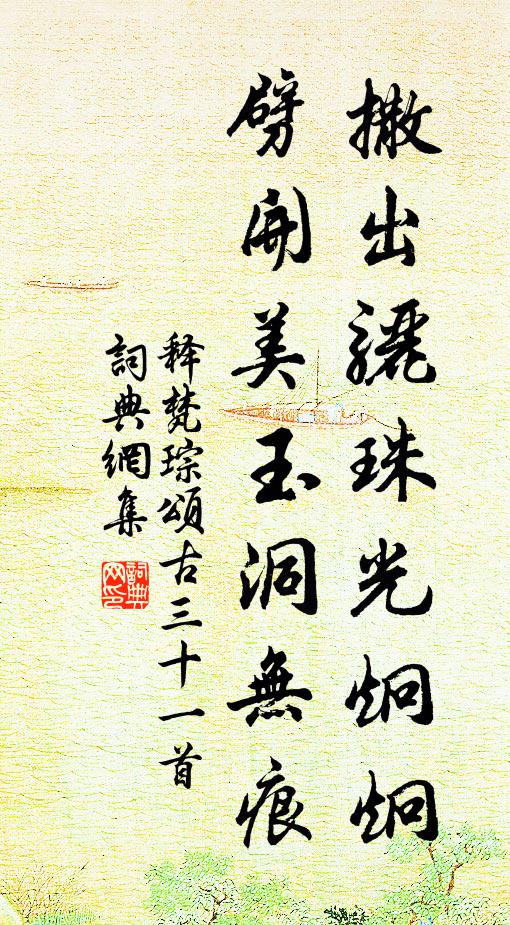 撒出驪珠光炯炯
劈開美玉洞無痕
释梵琮頌古三十一首
詞典網集
詞典
网印